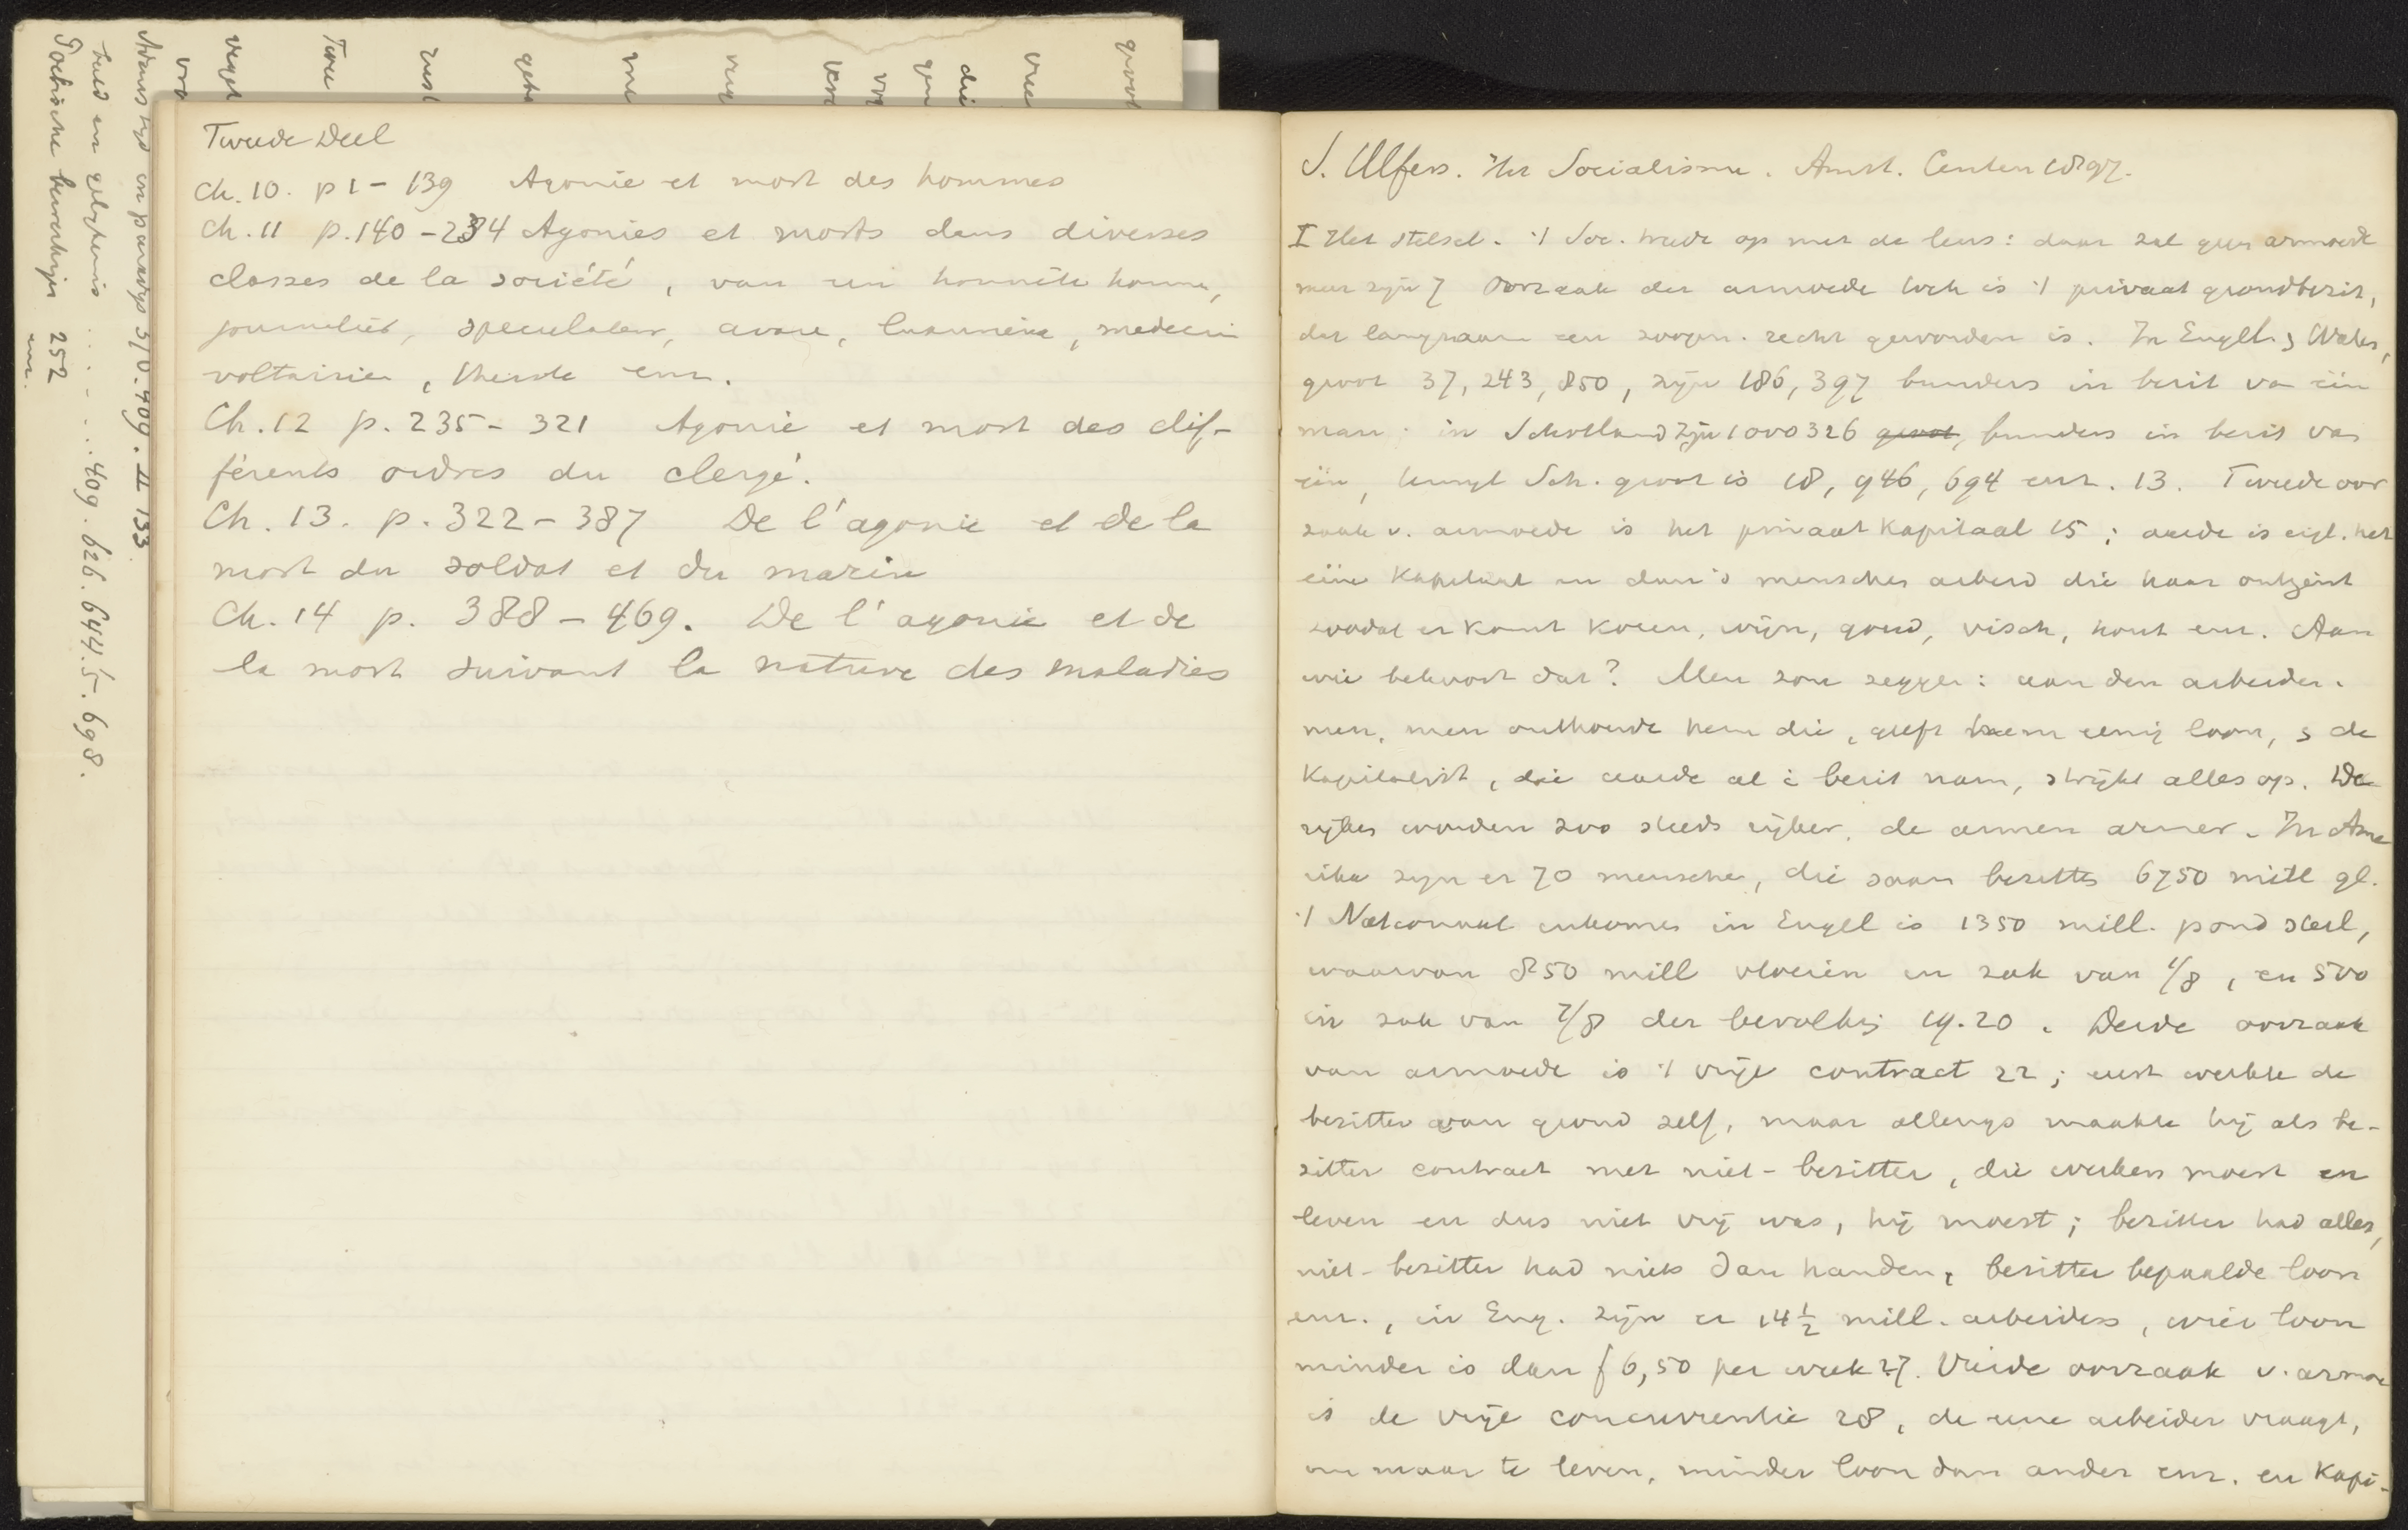 Tweede Deel
Ch. 10. p 1 - 139 Agonie et mort des hommes
Ch. 11 p. 140 - 234 Agonies et morts dans diverses
classes de la société, van un honnête homme,
journalist, speculateur, avare, médecin
voltairien, enz.
Ch. 12 p. 235 - 321 Agonie et mort des dif-
férents ordres du clergé.
Ch. 13. p. 322 - 387 De l'agonie et de la
mort du soldat et du marin
Ch. 14 p. 388 - 469. De l'agonie et de
la mort suivant la nature des maladies
J. Ulfers. Het Socialisme. Amst. Centen 1897.
I Het stelsel. 't Soc. trede op met de leus: daar zal geen armoede
meer zijn 7 Oorzaak der armoede toch is 't privaat grondbezit,
dat langzaam een zoogen. recht geworden is. In Engl. & Wales,
groot 37,243,850, zijn 186,397 bunders in bezit va één
man; in Schotland zijn 1000326 groot, bunders in bezit van
één, terwyl Sch. groot is 18,946,694 enz. 13. Tweede oor
zaak v. armoede is het privaat Kapitaal 15; aarde is eigl. het
ééne Kapitaal en dan 's menschen arbeid die haar ontgint
zoodat er komt koren, wijn, goud, visch, hout enz. Aan
wie behoort dat? Men zou zeggen: aan den arbeider.
neen, men onthoudt hem die, geeft hem eenig loon, & de
Kapitalist, die aarde al i bezit nam, strijkt alles op. De
rijken worden zoo steeds rijker, de armen armer. In Ame
rika zyn er 70 menschen, die saam bezitten 6750 mill gl.
't Nationaal inkomen in Engell is 1350 mill. pond sterl,
waarvan 850 mill vloeien in zak van 1/8, en 500
in zak van 7/8 der bevolking 19.20. Derde oorzaak
van armoede is 't vrije contract 22; eerst werkte de
bezitter van grond zelf, maar allengs maakte hij als be-
zitter contract met niet-bezitter, die werken moest en
leven en dus niet vrij was, hij moest; bezitter had alles,
niet-bezitter had niets dan handen, bezitter bepaalde loon
enz., in Eng. zijn er 14½ mill. arbeiders, wier loon
minder is dan f 6,50 per week 27. Vierde oorzaak v. armoe
is de vrije concurrentie 28, de eene arbeider vraagt,
om maar te leven, minder loon dan ander enz. en Kapi-
Adams tijd en paradys 310. 409. II 133
tuld en gelykenis ..... 409. 626. 644.5. 698.
Poëtische bewerkingen 252
enz.